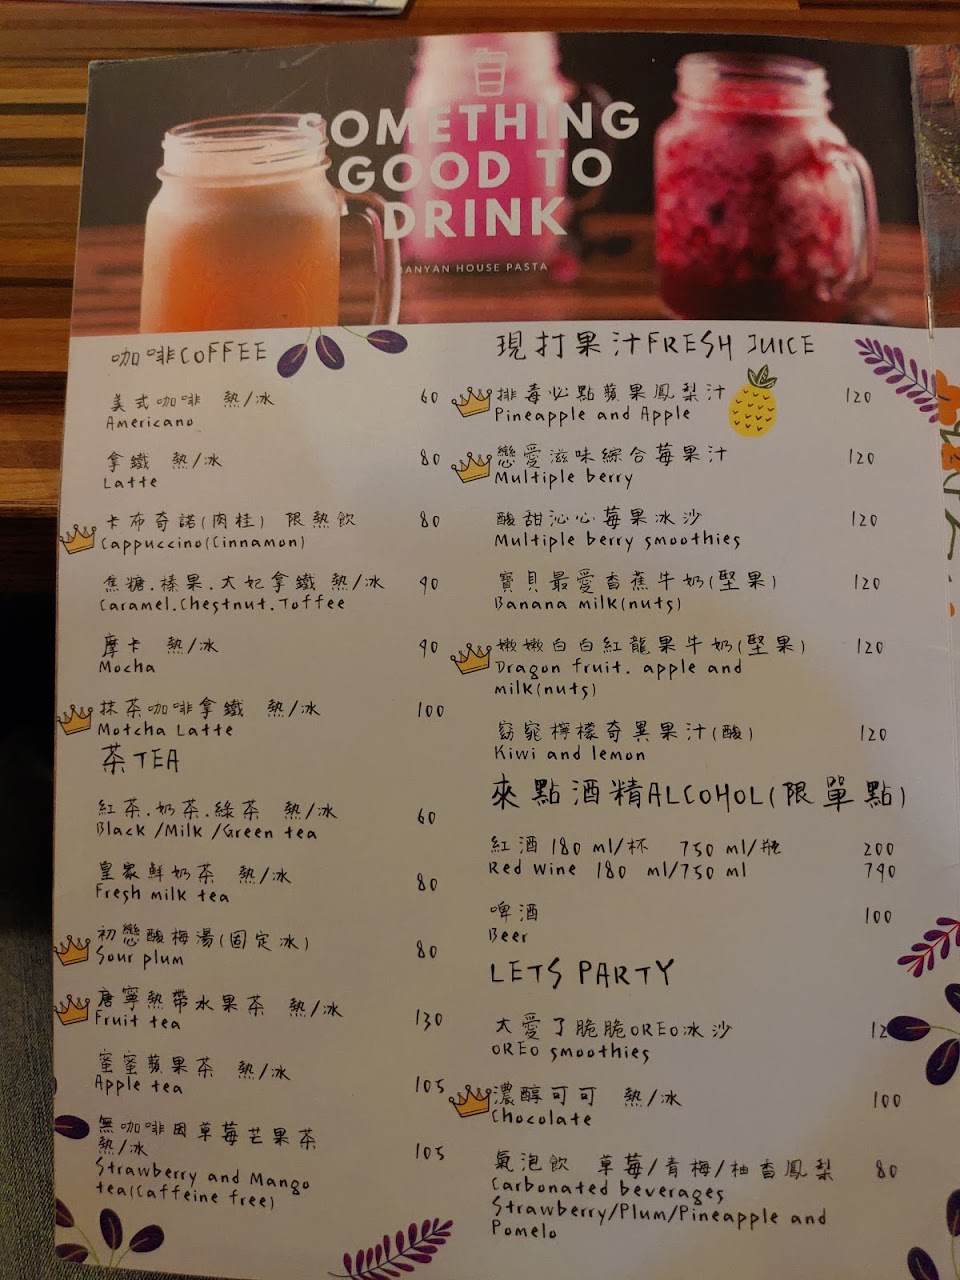 SOMETHING
GOOD TO
DRINK
HANYAN HOUSE PASTA
咖啡COFFEE
美式咖啡 熱/冰 60
Americano
拿鐵 熱/冰 80
Latte
卡布奇諾(肉桂) 限熱飲 80
Cappuccino(Cinnamon)
焦糖.榛果.太妃拿鐵 熱/冰 90
Caramel.Chestnut.Toffee
摩卡 熱/冰 90
Mocha
抹茶咖啡拿鐵 熱/冰 100
Motcha Latte
茶TEA
紅茶.奶茶.綠茶 熱/冰 60
Black /Milk /Green tea
皇家鮮奶茶 熱/冰 80
Fresh milk tea
初戀酸梅湯(固定冰) 80
Sour plum
唐寧熱帶水果茶 熱/冰 130
Fruit tea
蜜蜜蘋果茶 熱/冰 105
Apple tea
無咖啡因草莓芒果茶 105
熱/冰
Strawberry and Mango
tea(Caffeine free)
現打果汁FRESH JUICE
排毒必點蘋果鳳梨汁 120
Pineapple and Apple
戀愛滋味綜合莓果汁 120
Multiple berry
酸甜沁心莓果冰沙 120
Multiple berry smoothies
寶貝最愛香蕉牛奶(堅果) 120
Banana milk(nuts)
嫩嫩白白紅龍果牛奶(堅果) 120
Dragon fruit. apple and
milk(nuts)
窈窕檸檬奇異果汁(酸) 120
Kiwi and lemon
來點酒精ALCOHOL(限單點)
紅酒 180 ml/杯 750 ml/瓶 200
Red wine 180 ml/750 ml 790
啤酒 100
Beer
LETS PARTY
太愛了脆脆OREO冰沙 12
OREO smoothies
濃醇可可 熱/冰 100
Chocolate
氣泡飲 草莓/青梅/柚香鳳梨 80
Carbonated beverages
Strawberry/Plum/Pineapple and
Pomelo